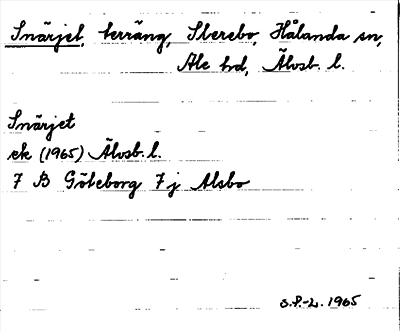 Snärjet, terräng, Sterebo, Hålanda sn,
Ale hd, Älvsb. l.
Snärjet
ek (1965) Älvsb. l.
7 B Göteborg 7j Alsbo
S.P.-L. 1965